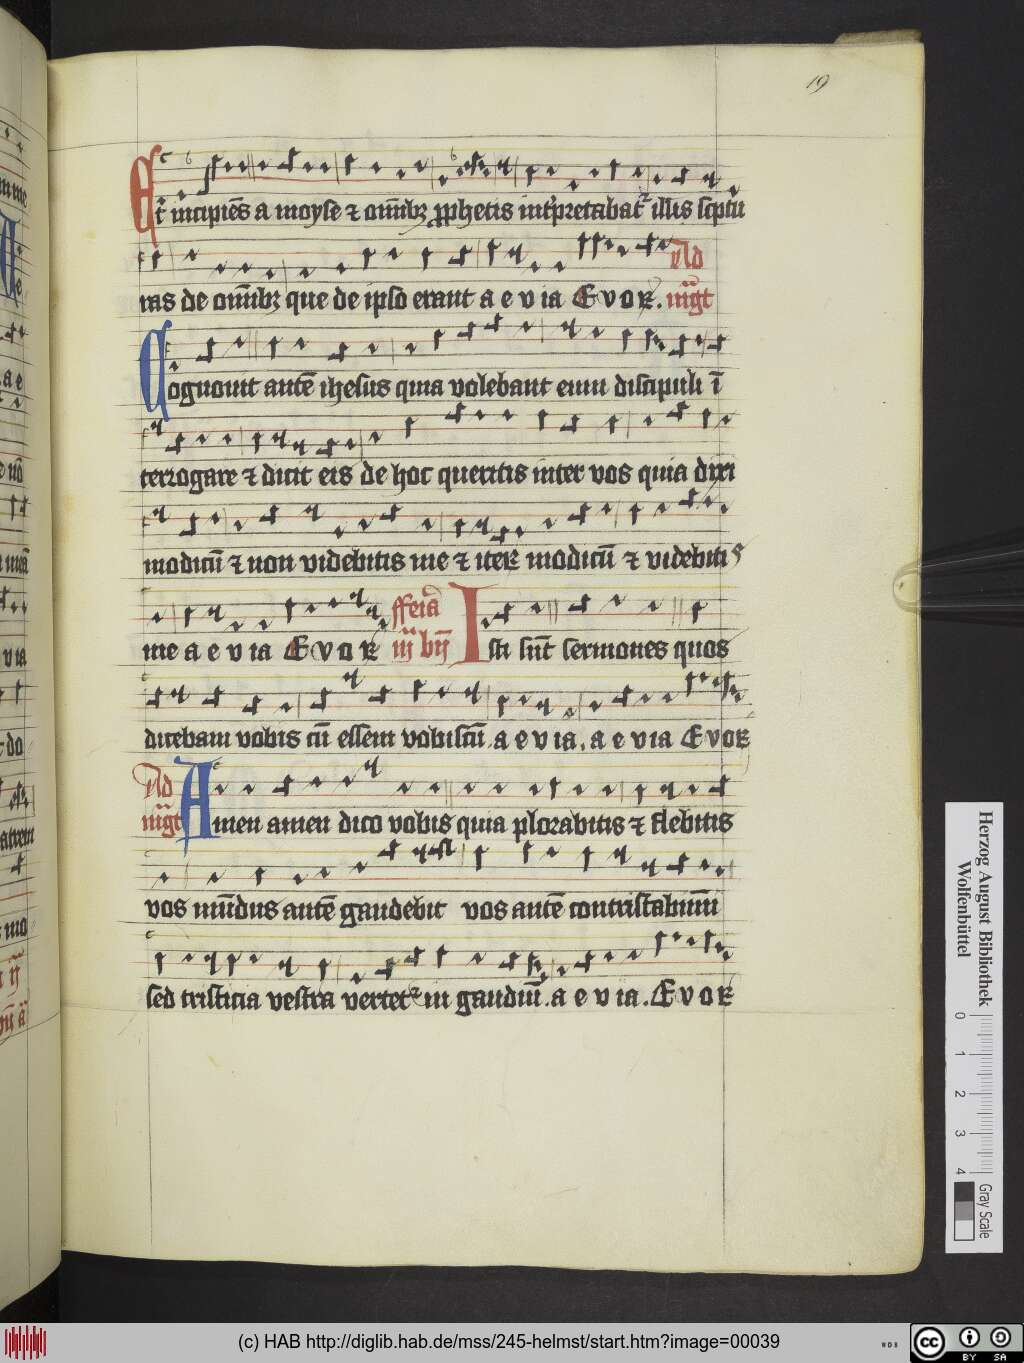 19
Et incipiēs a moyse ⁊ om̄ibꝫ ꝓphetis int͛pretabat᷑ illis sc̄ptu
ras de om̄ibꝫ que de ipso erant a e v ia E v o ꝛ. Ad
mg̃t
Cognouit autē ihesus quia volebant eum discipuli ī
terrogare ⁊ dicit eis de hoc queritis inter vos quia dixi
modicū ⁊ non videbitis me ⁊ iteꝝ modicū ⁊ videbitis
me a e v ia E v o ꝛ fferia
iij bn̄ Isti sūt sermones quos
dicebam vobis cū essem vobiscū a e v ia, a e v ia E v o ꝛ
Ad
mg̃t Amen amen dico vobis quia plorabitis ⁊ flebitis
vos mūdus autē gaudebit vos autē contristabimī
sed tristicia vestra vertet᷑ in gaudiū . a e v ia . E v o ꝛ
Herzog August Bibliothek
Wolfenbüttel
0 1 2 3 4
Gray Scale
(c) HAB http://diglib.hab.de/mss/245-helmst/start.htm?image=00039
WDB
cc BY SA